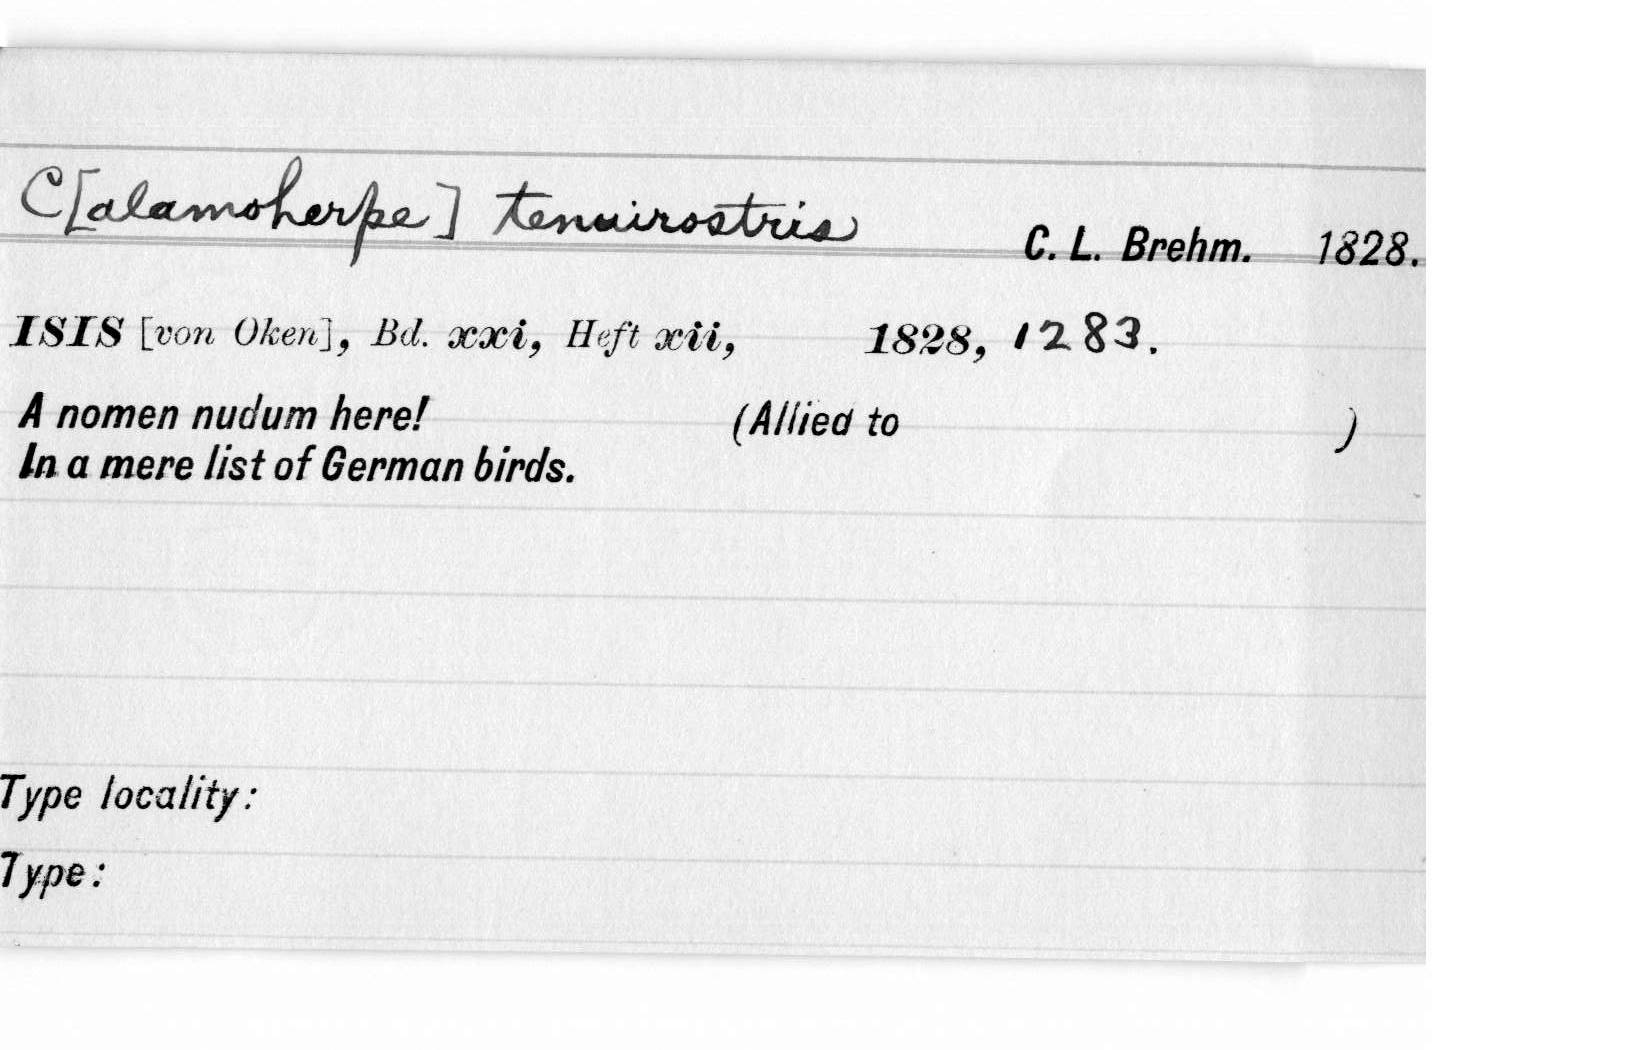 C[alamoherpe] tenuirostris C. L. Brehm. 1828.
ISIS [von Oken], Bd. xxi, Heft xii, 1828, 1283.
A nomen nudum here! (Allied to )
In a mere list of German birds.
Type locality:
Type: